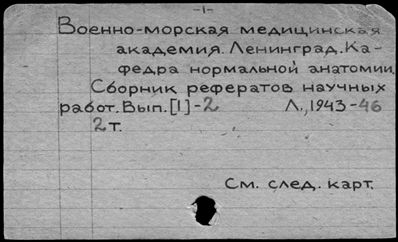 -1-
Военно-морская медицинская
академия. Ленинград. Ка-
федра нормальной анатомии.
Сборник рефератов научных
работ. Вып. [1]-2 Л., 1943-46
2 т.
См. след. карт.